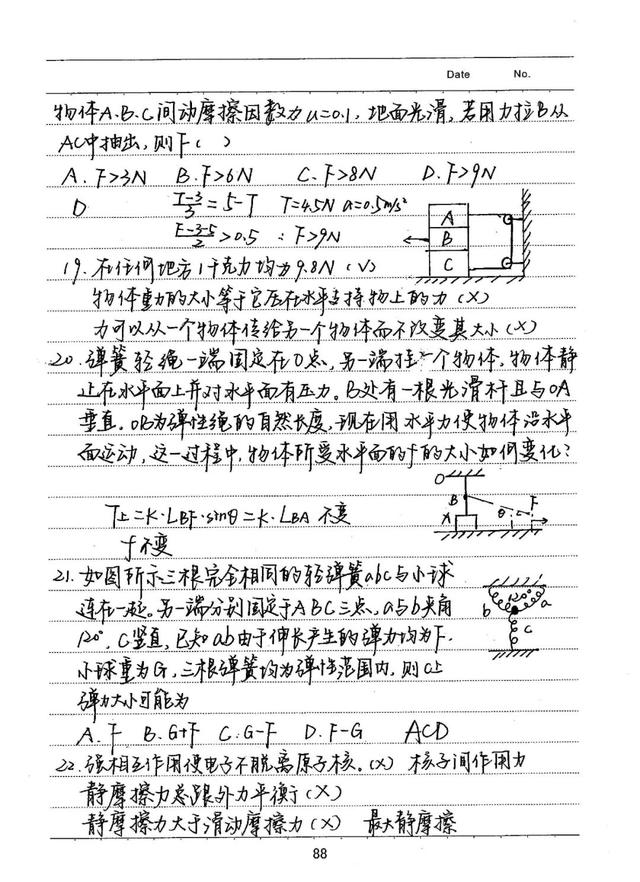 Date No.
物体A.B.C间动摩擦因数为u=0.1,地面光滑,若用力拉B从
AC中抽出,则F( )
A. F>3N B. F>6N C. F>8N D. F>9N
D T-3/3=5-T T=4.5N a=0.5m/s²
F-3-5/2>0.5 ∴F>9N
A
B
C
19. 在任何地方1千克力均为9.8N (√)
物体重力的大小等于它压在水平支持物上的力(×)
力可以从一个物体传给另一个物体而不改变其大小(×)
20. 弹簧轻绳一端固定在O点,另一端挂一个物体,物体静
止在水平面上并对水平面有压力。B处有一根光滑杆且与OA
垂直。OB为弹性绳的自然长度,现在用水平力使物体沿水平
面运动,这一过程中,物体所受水平面的f的大小如何变化?
O
B
A
θ
F
T上=K·LBF·sinθ=K·LBA 不变
f不变
21. 如图所示三根完全相同的轻弹簧abc与小球
连在一起。另一端分别固定于ABC三点,a与b夹角
120°,C竖直,已知ab由于伸长产生的弹力均为F.
小球重为G,三根弹簧均为弹性范围内,则C上
弹力大小可能为
120°
b
a
c
A. F B. G+F C. G-F D. F-G ACD
22. 强相互作用使电子不脱离原子核。(×) 核子间作用力
静摩擦力总跟外力平衡(×)
静摩擦力大于滑动摩擦力(×) 最大静摩擦
88